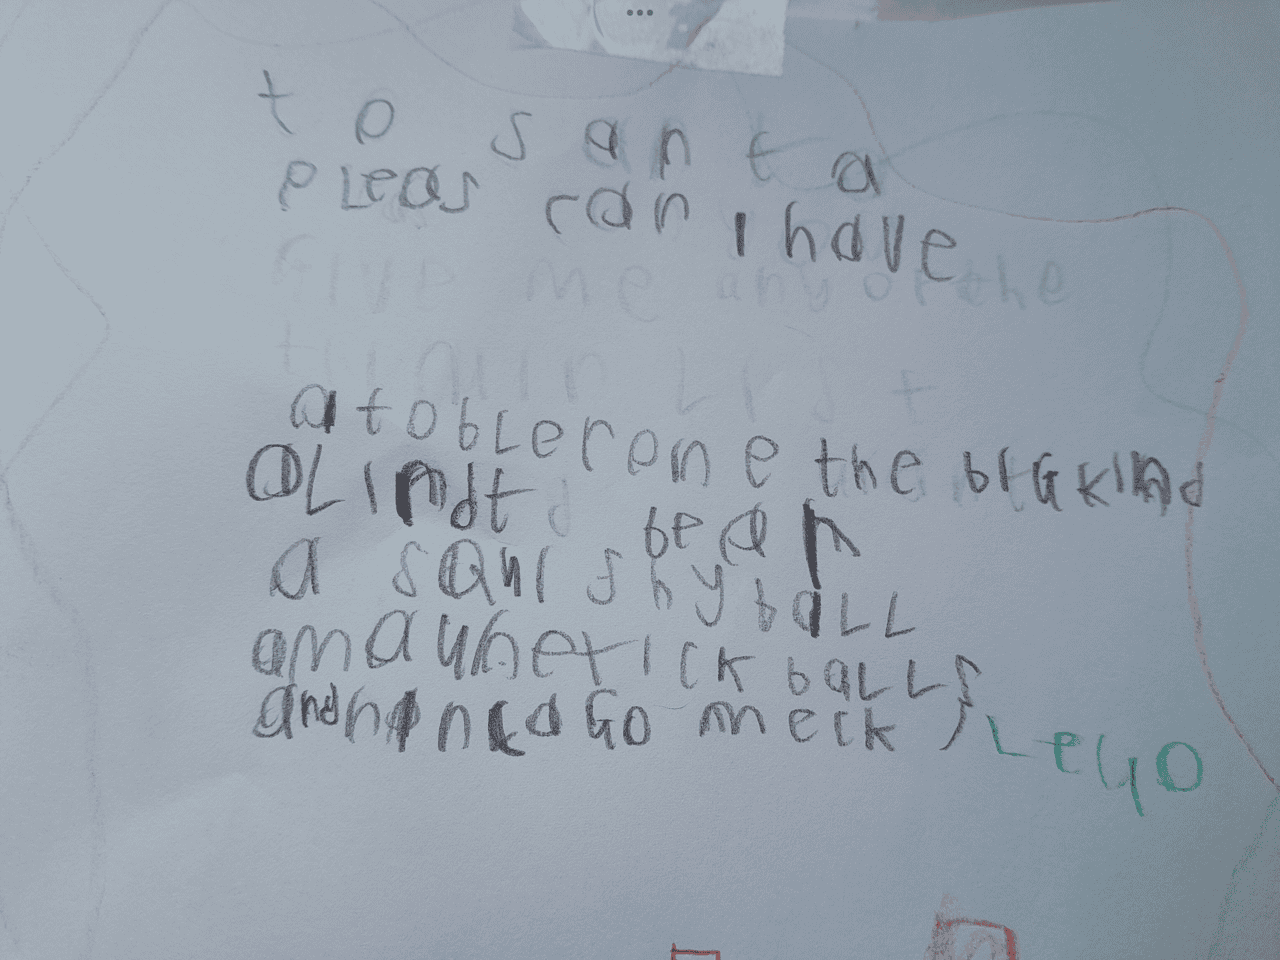 to santa
pleas can i have
Give me any of the
List
a toblerone the bIG kind
a Lindt bear
a squishy baLL
a maghetick baLLs
and nincdGo meck LeGO